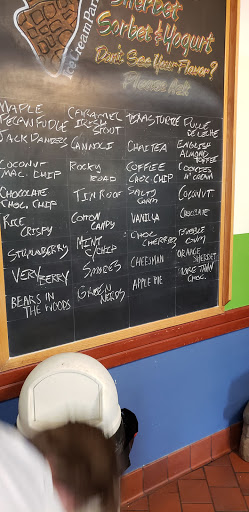 Ice Cream Par
Sherbet
Sorbet & Yogurt
Don't See Your Flavor?
Please Ask
MAPLE
PECAN FUDGE
JACK DANIELS
COCONUT
MAC. CHIP
CHOCOLATE
CHOC. CHIP
RICE
CRISPY
STRAWBERRY
VERY BERRY
BEARS IN
THE WOODS
CARAMEL
IRISH
STOUT
CANNOLI
ROCKY
ROAD
TIN ROOF
COTTON
CANDY
MINT
C/CHIP
SMORES
GREEN
NERDS
TEXAS TURTLE
CHAI TEA
COFFEE
CHOC. CHIP
SALTY
VANILLA
CHOC
CHERRIES
CHEESMAN
APPLE PIE
DULCE
DE LECHE
ENGLISH
ALMOND
TOFFEE
COOKIES
N' CREAM
COCONUT
CHOCOLATE
ORANGE
SHERBET
MORE THAN
CHOC.